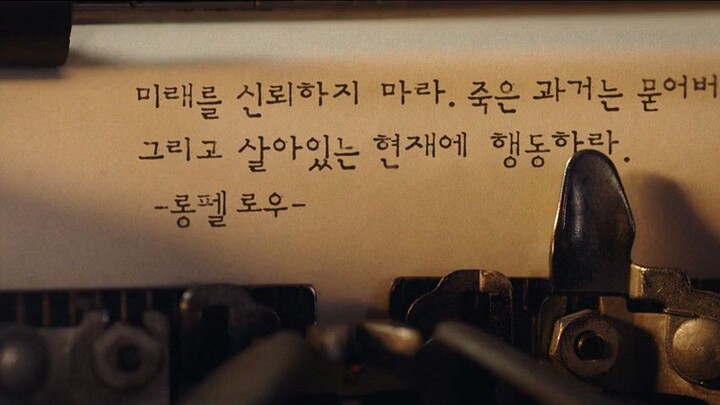 미래를 신뢰하지 마라. 죽은 과거는 묻어버
그리고 살아있는 현재에 행동하라.
-롱펠로우-